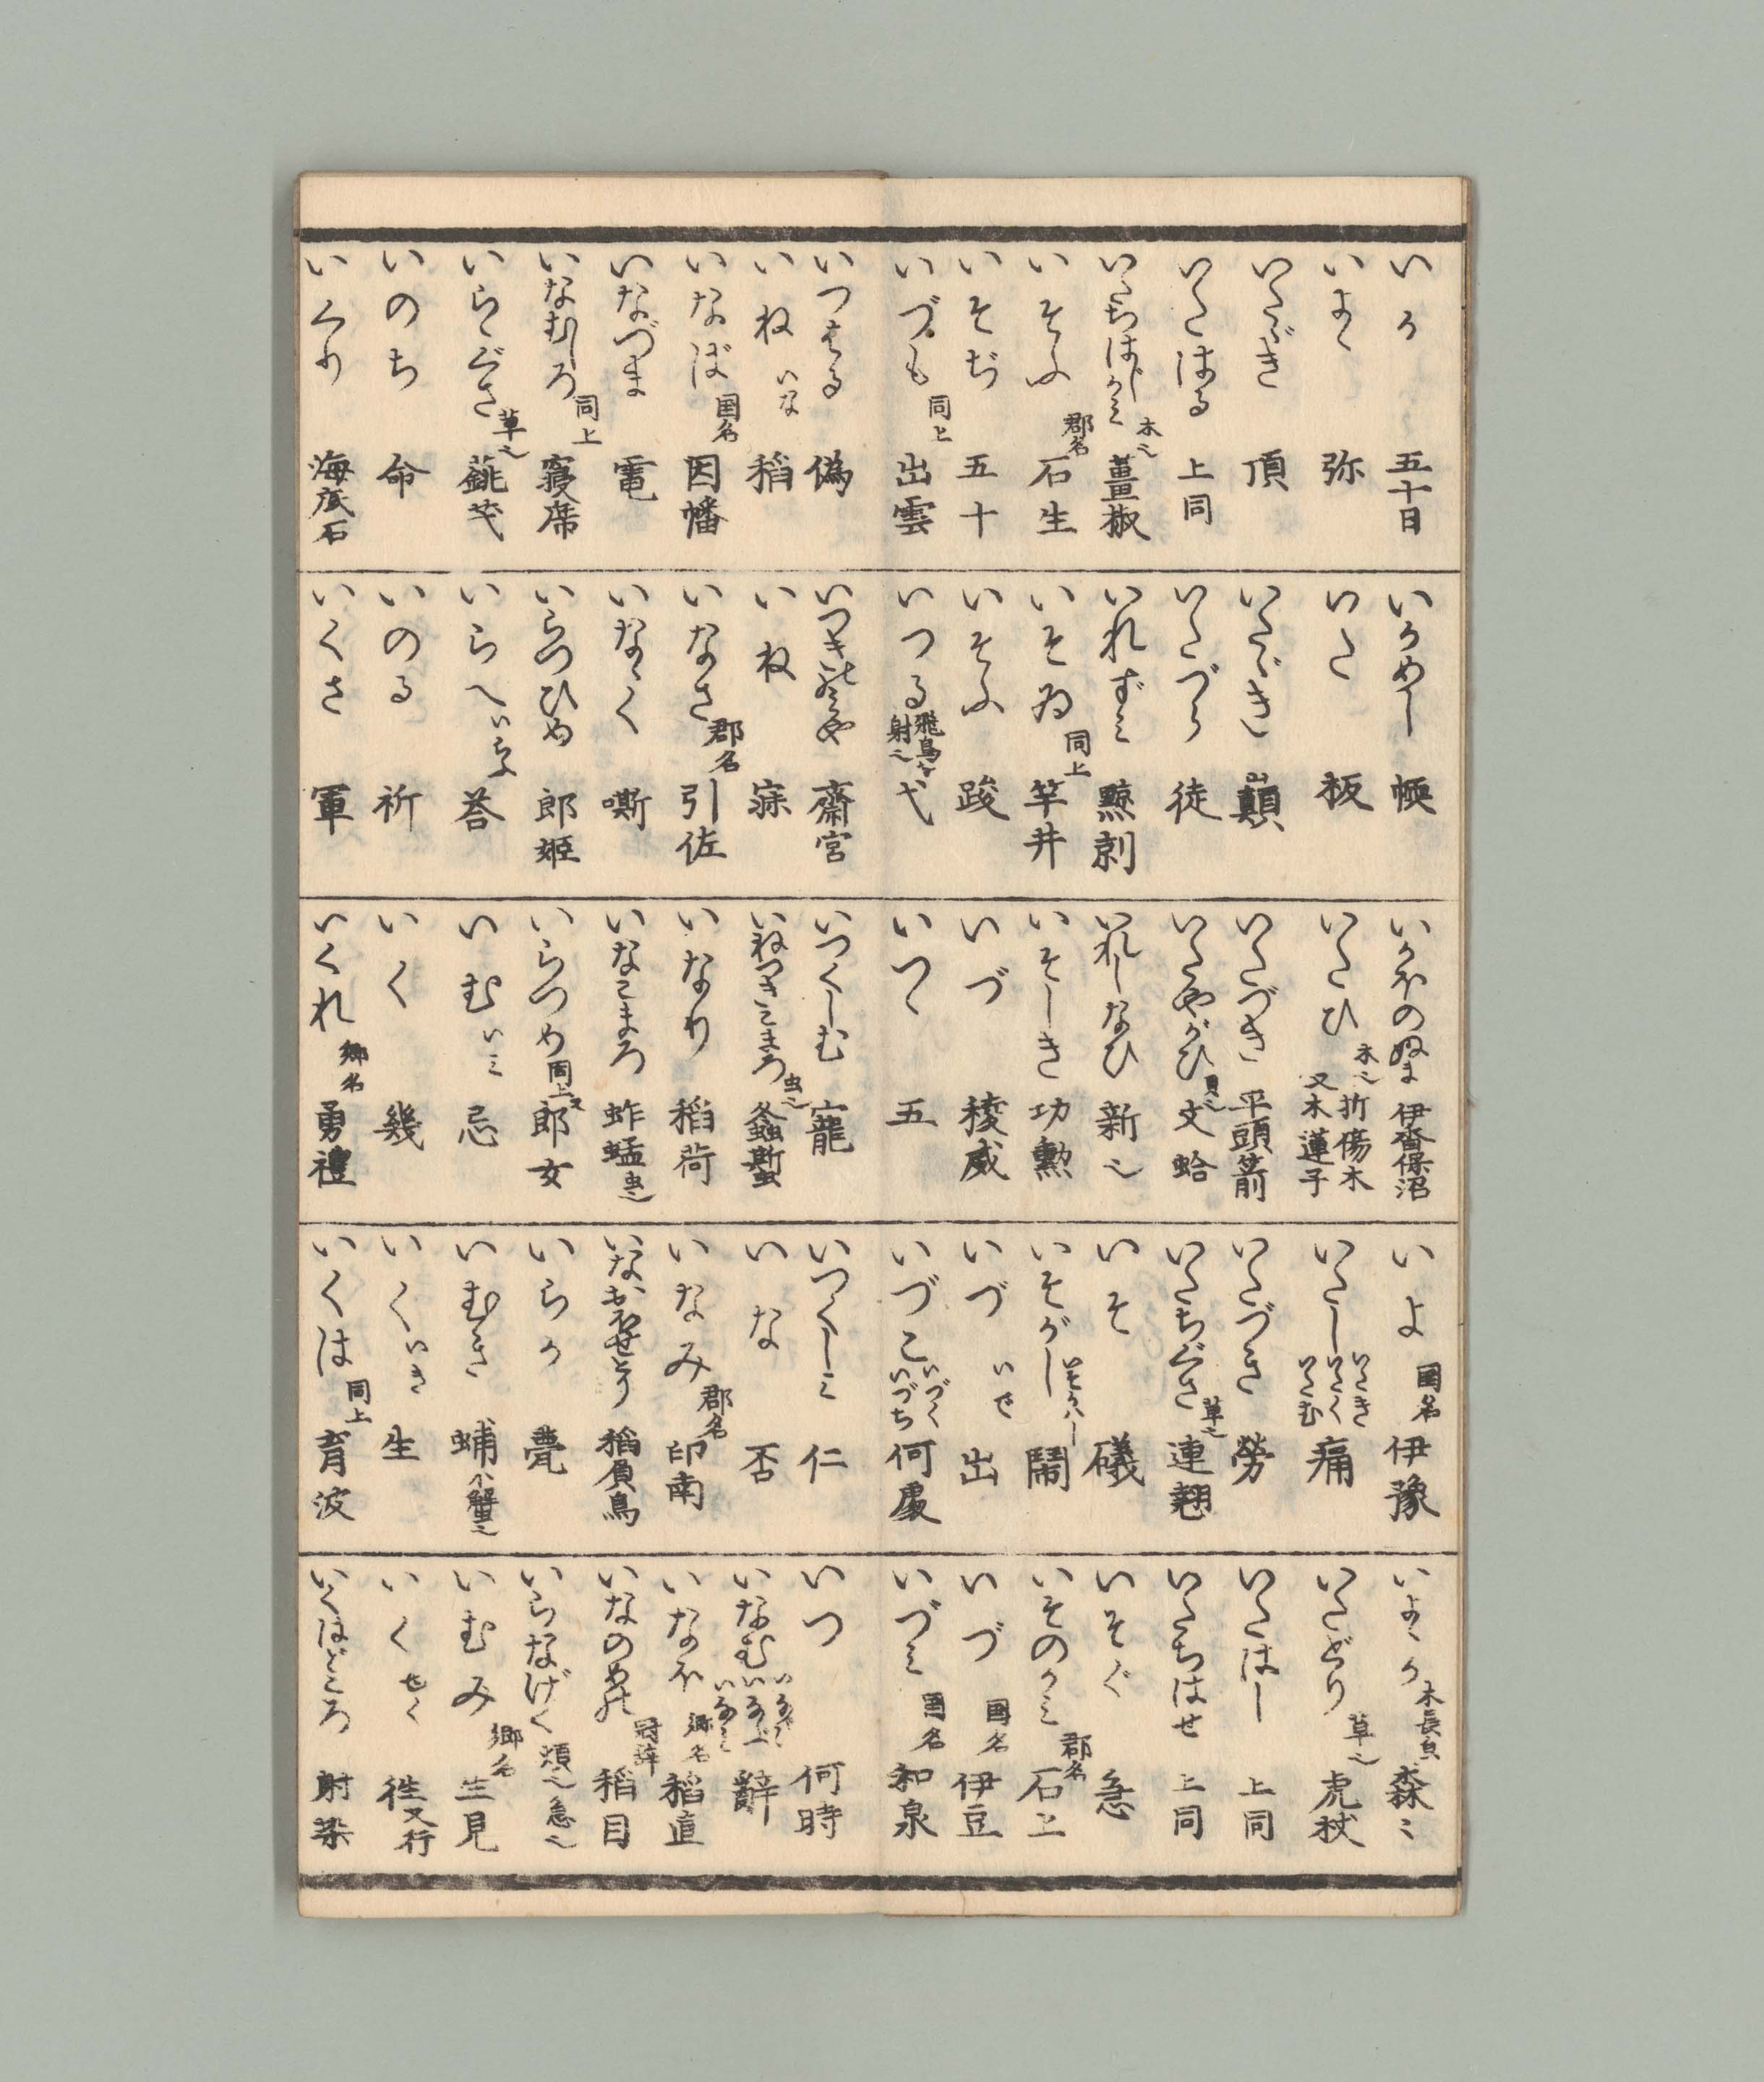 いか 五十日
いかめし 㥦
いかほのぬま 伊香保沼
いよ 国名 伊豫
いよゝか 木長皃 森〻
いよゝ 弥
いた 板
いたひ 木也 折傷木 又木蓮子
いたし いたき いたく いたむ 痛
いたどり 草也 虎杖
いたゞき 頂
いたゞき 巓
いたづき 平頭箭
いたづき 勞
いたはし 上同
いたはる 上同
いたづら 徒
いたやがひ 貝也 文蛤
いたちぐさ 草也 連翹
いたちはせ 上同
いたちはじかみ 木也 薑椒
いれずみ 黥剠
いれしなひ 新也
いそ 礒
いそぐ 急
いそふ 郡名 石生
いそゐ 同上 竿井
いそしき 功勲
いそがし いそがハし 閙
いそのかみ 郡名 石上
いそぢ 五十
いそふ 踆
いづ 稜威
いづ いで 出
いづ 国名 伊豆
いづも 同上 出雲
いつる 飛鳥ヲ射也 弋
いつゝ 五
いづこ いづく いづち 何處
いづみ 国名 和泉
いつはる 偽
いつきのみや 齋宮
いつくしむ 寵
いつくしミ 仁
いつ 何時
いね いな 稻
いね 寐
いねつきこまろ 虫也 螽蟖
いな 否
いなむ いなぶ いなミ 辭
いなば 国名 因幡
いなさ 郡名 引佐
いなり 稻荷
いなみ 郡名 印南
いなほ 郷名 稻直
いなづま 電
いなゝく 嘶
いなごまろ 蚱蜢 虫也
いなおほせとり 稻負鳥
いなのめの 冠辞 稻目
いなむしろ 同上 寝席
いらつひめ 郎姫
いらつめ 同上又 郎女
いらか 甍
いらなげく 煩也急也
いらゝぐさ 草也
いらへ いらふ 荅
いむ いミ 忌
いむき 蜅 小蟹也
いむみ 郷名 生見
いのち 命
いのる 祈
いく 幾
いく いき 生
いく ゆく 徃又行
いくり 海底石
いくさ 軍
いくれ 郷名 勇禮
いくは 同上 育波
いくはどころ 射𣑥